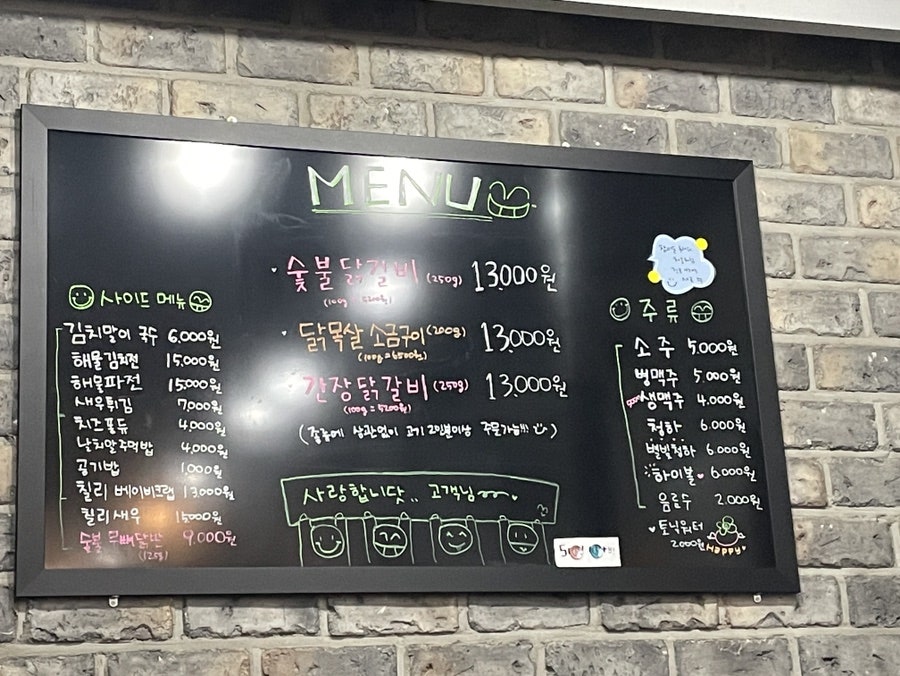 MENU
숯불닭갈비 (250g) 13,000원
(100g = 5200원)
닭목살 소금구이 (200g) 13,000원
(100g = 6500원)
간장닭갈비 (250g) 13,000원
(100g = 5200원)
상관없이 고기 2인분이상 주문가능!!!
사랑합니닷.. 고객님
사이드 메뉴
김치말이 국수 6,000원
해물김치전 15,000원
해물파전 15,000원
새우튀김 7,000원
치즈퐁듀 4,000원
날치알주먹밥 4,000원
공기밥 1,000원
칠리 베이비크랩 13,000원
칠리새우 15,000원
숯불 무뼈닭발 9,000원
(125g)
주류
소주 5,000원
병맥주 5,000원
생맥주 4,000원
청하 6,000원
별빛청하 6,000원
하이볼 6,000원
음료수 2,000원
토닉워터
2000원
HAPPY